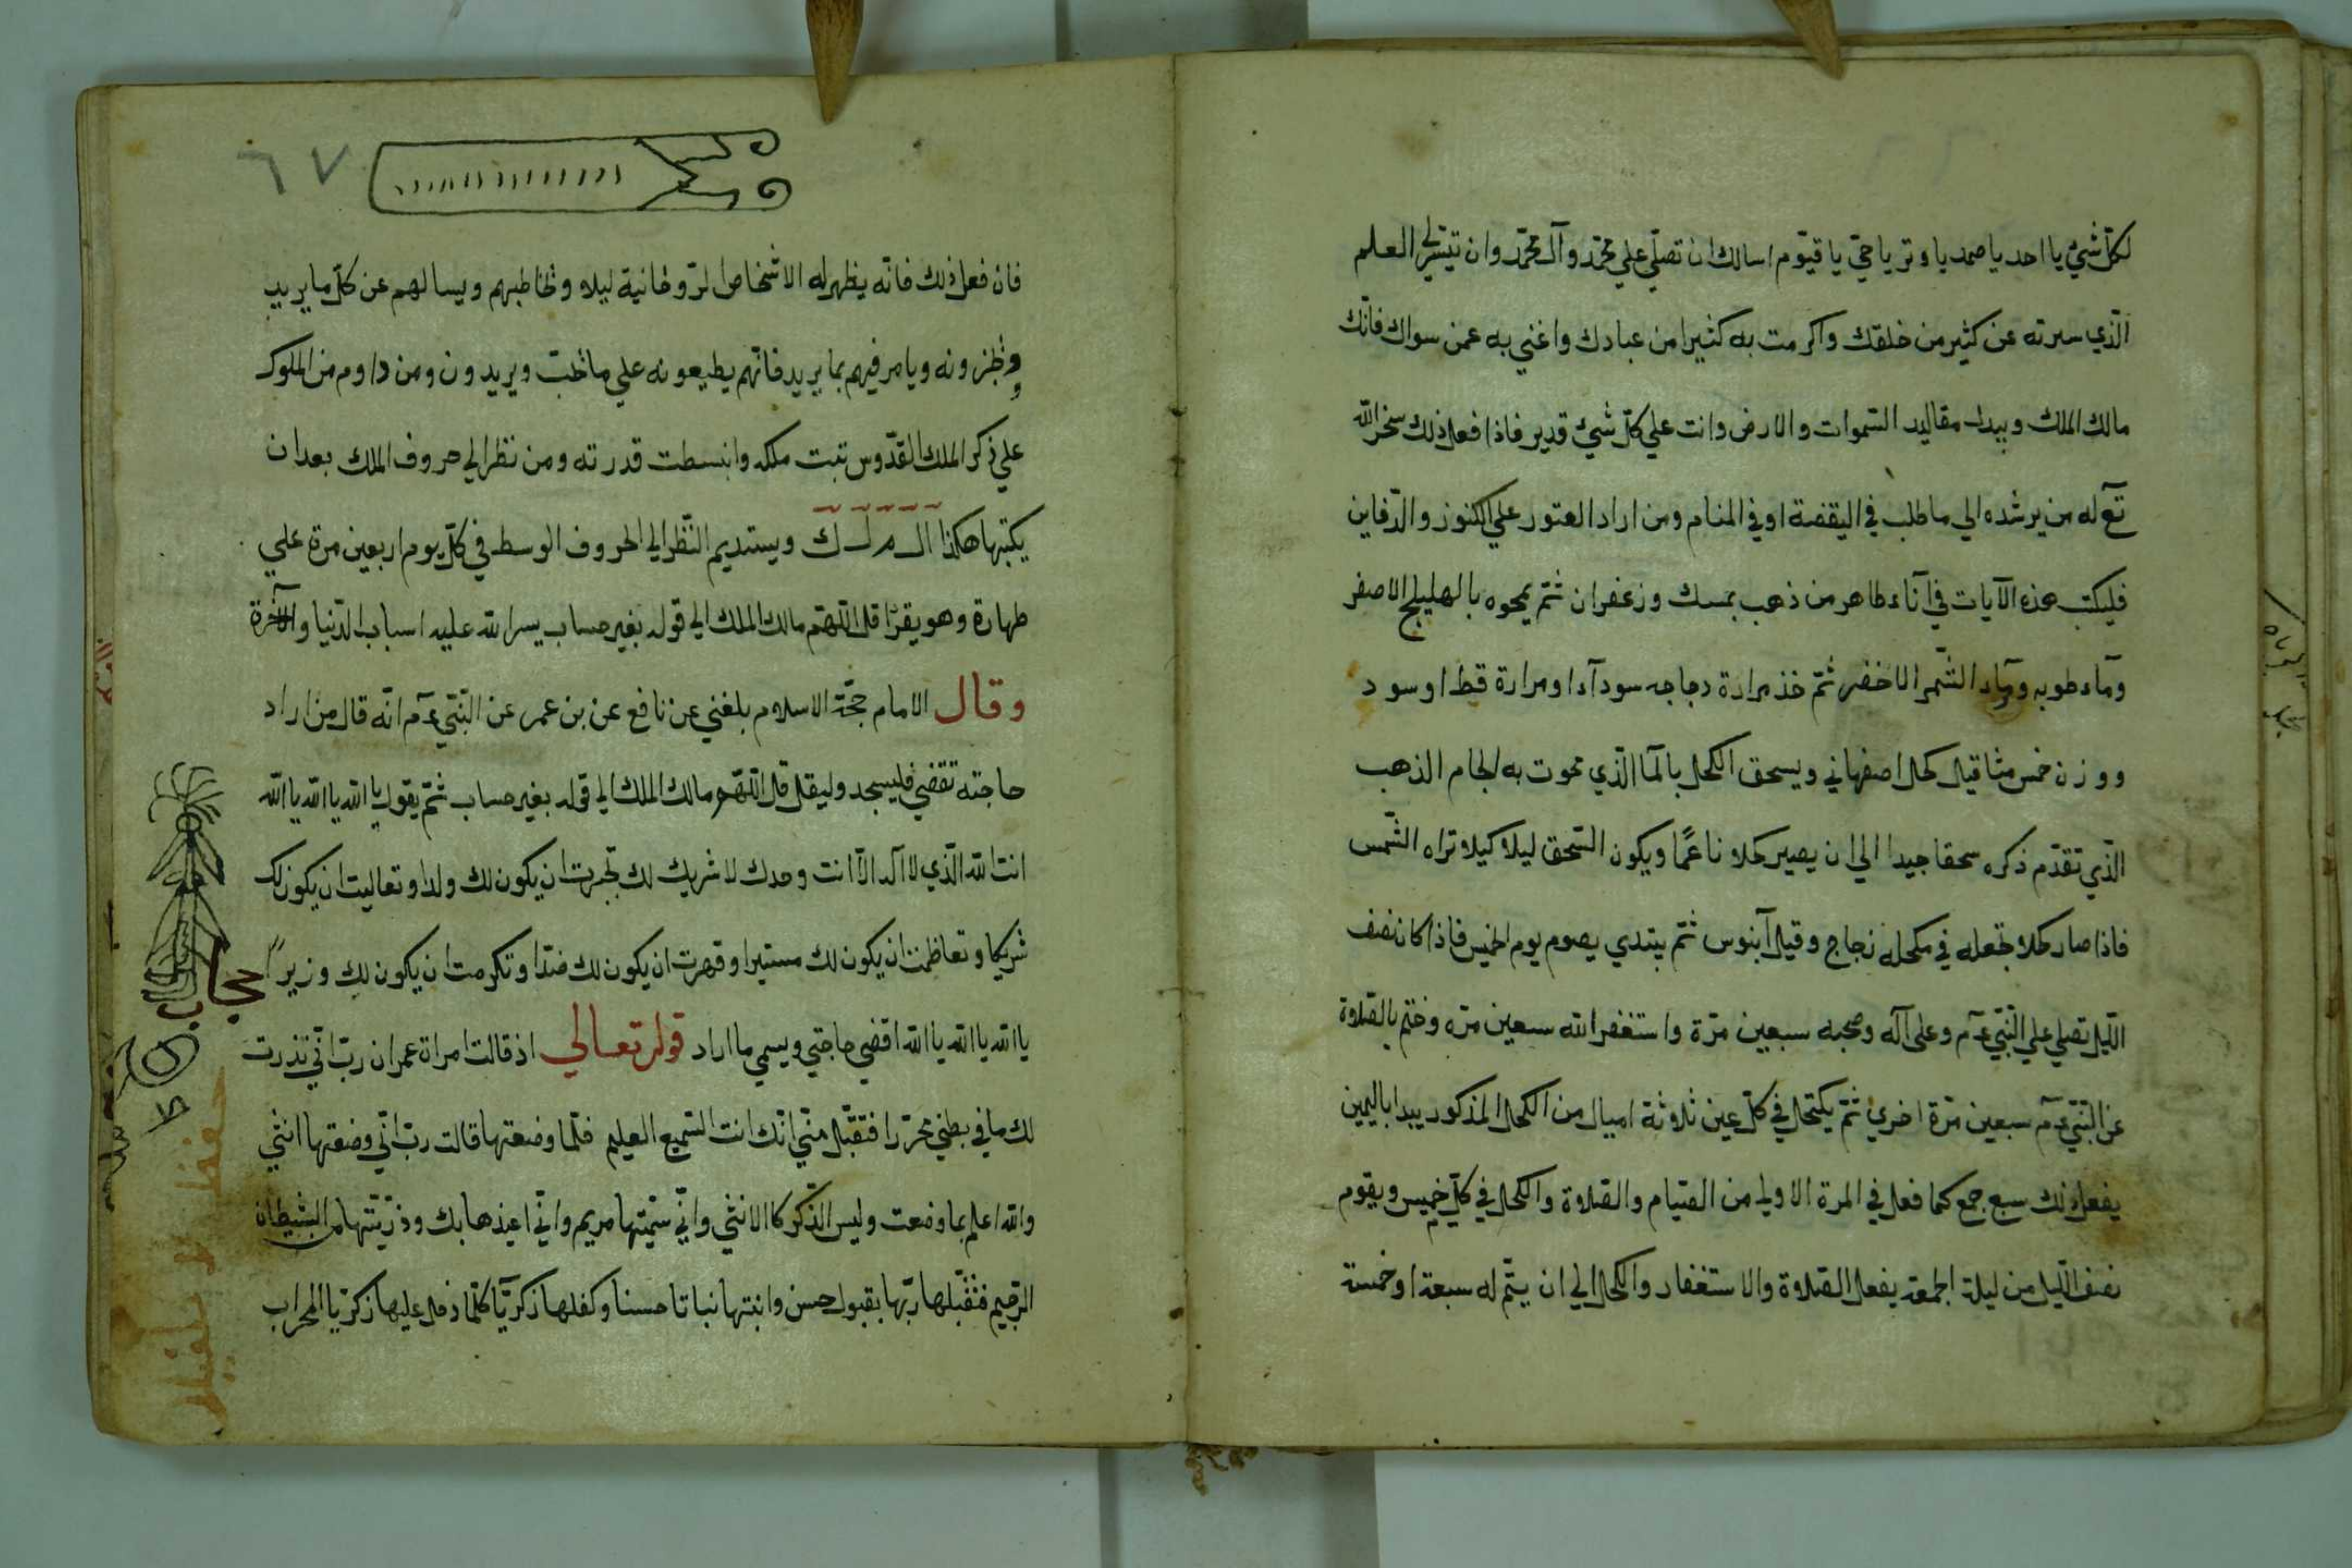 لكلّ شئ يا احد يا صمد يا وتر يا حيّ يا قيّوم اسالك ان تصلّي علي محمّد وآل محمّد وان تيسّر لي العلم
الّذي سترته عن كثير من خلقك واكرمت به كثيرا من عبادك واغني به عمن سواك فانّك
مالك الملك وبيدك مقاليد السّموات والارض وانت علي كلّ شئ قدير فاذا فعل ذلك سخر الله
تع له من يرشده الي ما طلب في اليقضة او في المنام ومن اراد العثور علي الكنوز والدّفاين
فليكتب هذه الآيات في آناء طاهر من ذهب بمسك وزعفران ثمّ يمحوه بالهليلج الاصفر
وماء طوبه وماء الشّمر الاخضر ثمّ خذ مرارة دجاجه سوداء او مرارة قط اوسود
ووزن خمس مثاقيل كحل اصفهاني ويسحق الكحل بالما الّذي محوت به الجام الذهب
الّذي تقدّم ذكره سحقا جيدا الي ان يصير كحلا ناعمًا ويكون السّحق ليلا كيلا تراه الشّمس
فاذا صار كحلا تجعله في مكحله زجاج وقيل آبنوس ثمّ يبتدي يصوم يوم الخميس فاذا كان نصف
اللّيل تصلي علي النّبّي عم وعلى آله وصحبه سبعين مرّة واستغفر الله سبعين مرّه وختم بالصّلاوة
عن النّبّي عم سبعين مرّة اخري ثمّ يكتحل في كلّ عين ثلاوثة اميال من الكحل المذكور يبدا باليمين
يفعل ذلك سبع جمع كما فعل في المرة الاولي من الصّيام والصّلاوة والكحل في كلّ خميس ويقوم
نصف اللّيل من ليلة الجمعة يفعل الصّلاوة والاستغفار والكحل الي ان يتّم له سبعة او خمسة
٦٧
فان فعل ذلك فانّه يظهر له الاشخاص الرّوحانية ليلاو وتخاطبهم ويسالهم عن كلّ ما يريد
ويأمر فيهم بما يريد فانّهم يطيعونه علي ما تحب ويريدون ومن داوم من الملوك
علي ذكر الملك القدّوس تبت ملكه وانبسطت قدرته ومن نظر الي حروف الملك بعد ان
يكتبها هكذا ال م ل ك ويستديم النّظر الي الحروف الوسط في كلّ يوم اربعين مرة علي
طهارة وهو يقرا قل اللّهمّ مالك الملك الي قوله بغير حساب يسر الله عليه اسباب الدّنيا والآخرة
وقال الامام حجّة الاسلاوم بلغني عن نافع عن بن عمر عن النّبّي عم انّه قال من اراد
حاجته تقضي فليسجد وليقل قل اللّهمّ مالك الملك الي قوله بغير حساب ثمّ يقول يا الله يا الله يا الله
انت الله الّذي لا اله الّا انت وحدك لا شريك لك تجبرت ان يكون لك ولدا وتعاليت ان يكون لك
شريكا وتعاظمت ان يكون لك مستيرا وقهرت ان يكون لك ضدّا وتكرمت ان يكون لك وزيرًا
يا الله يا الله يا الله اقضي حاجتي ويسمي ما اراد قوله تعالي اذ قالت امراة عمران ربّ انّي نذرت
لك ما في بطني محرّرا فتقبّل منّي انّك انت السّميع العليم فلمّا وضعتها قالت ربّ انّي وضعتها انثي
والله اعلم بما وضعت وليس الذّكر كاالانثي وانّي سمّيتها مريم وانّي اعيذها بك وذرّيّتها من الشّيطان
الرّجيم فتقّبلها ربّها بقبول حسن وانبتها نباتا حسنا وكفلها زكريّا كلّما دخل عليها زكريّا المحراب
حجاب
حفظ